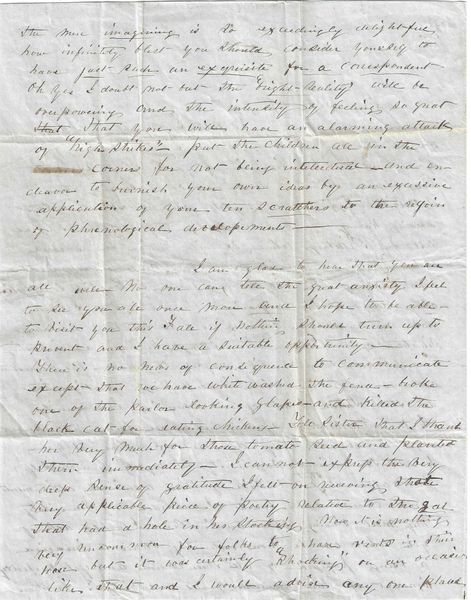 the mere imagining is so exceedingly delightful
how infinitely blest you should consider yourself to
have just such an exquisite for a correspondent
Oh yes I doubt not but the "bright reality" will be
overpowering and the intensity of feeling so great
that that you will have an alarming attack
of "high strikes" – put the children all in the
corner for not being intellectual – and en-
deavor to furnish your own ideas by an excessive
application of your ten scratchers to the region
of phrenological developements –
I am glad to hear that you are
all well No one can tell the great anxiety I feel
to see you all once more – and I hope to be able –
to visit you this Fall if nothing should turn up to
prevent and I have a suitable opportunity –
There is no news of consequence to communicate
except – that we have white washed the fence – broke
one of the parlor looking Glasses – and killed the
black cat – for eating chickens – Tell Sister that I thank
her very much for those tomato seed and planted
them immediately – I cannot express the very
deep sense of gratitude I felt on receiving that
very applicable piece of poetry related to the gal
that had a hole in her Stocking. Now it is nothing
very uncommon for folks to have rents in their
now but it was certainly "Shocking" on an occasion
like that and I would advise any one placed